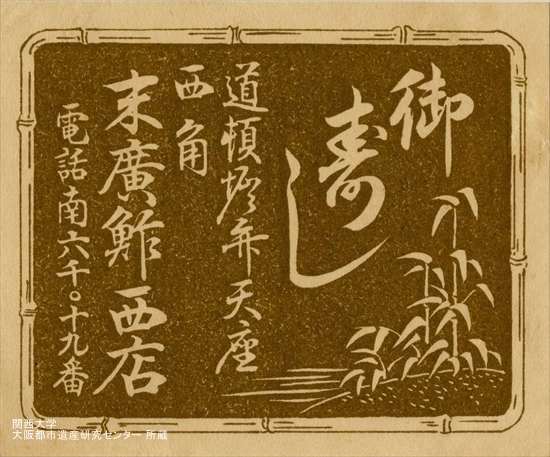 御
壽し
道頓堀弁天座
西角
末廣鮓西店
電話南六千〇十九番
関西大学
大阪都市遺産研究センター 所蔵